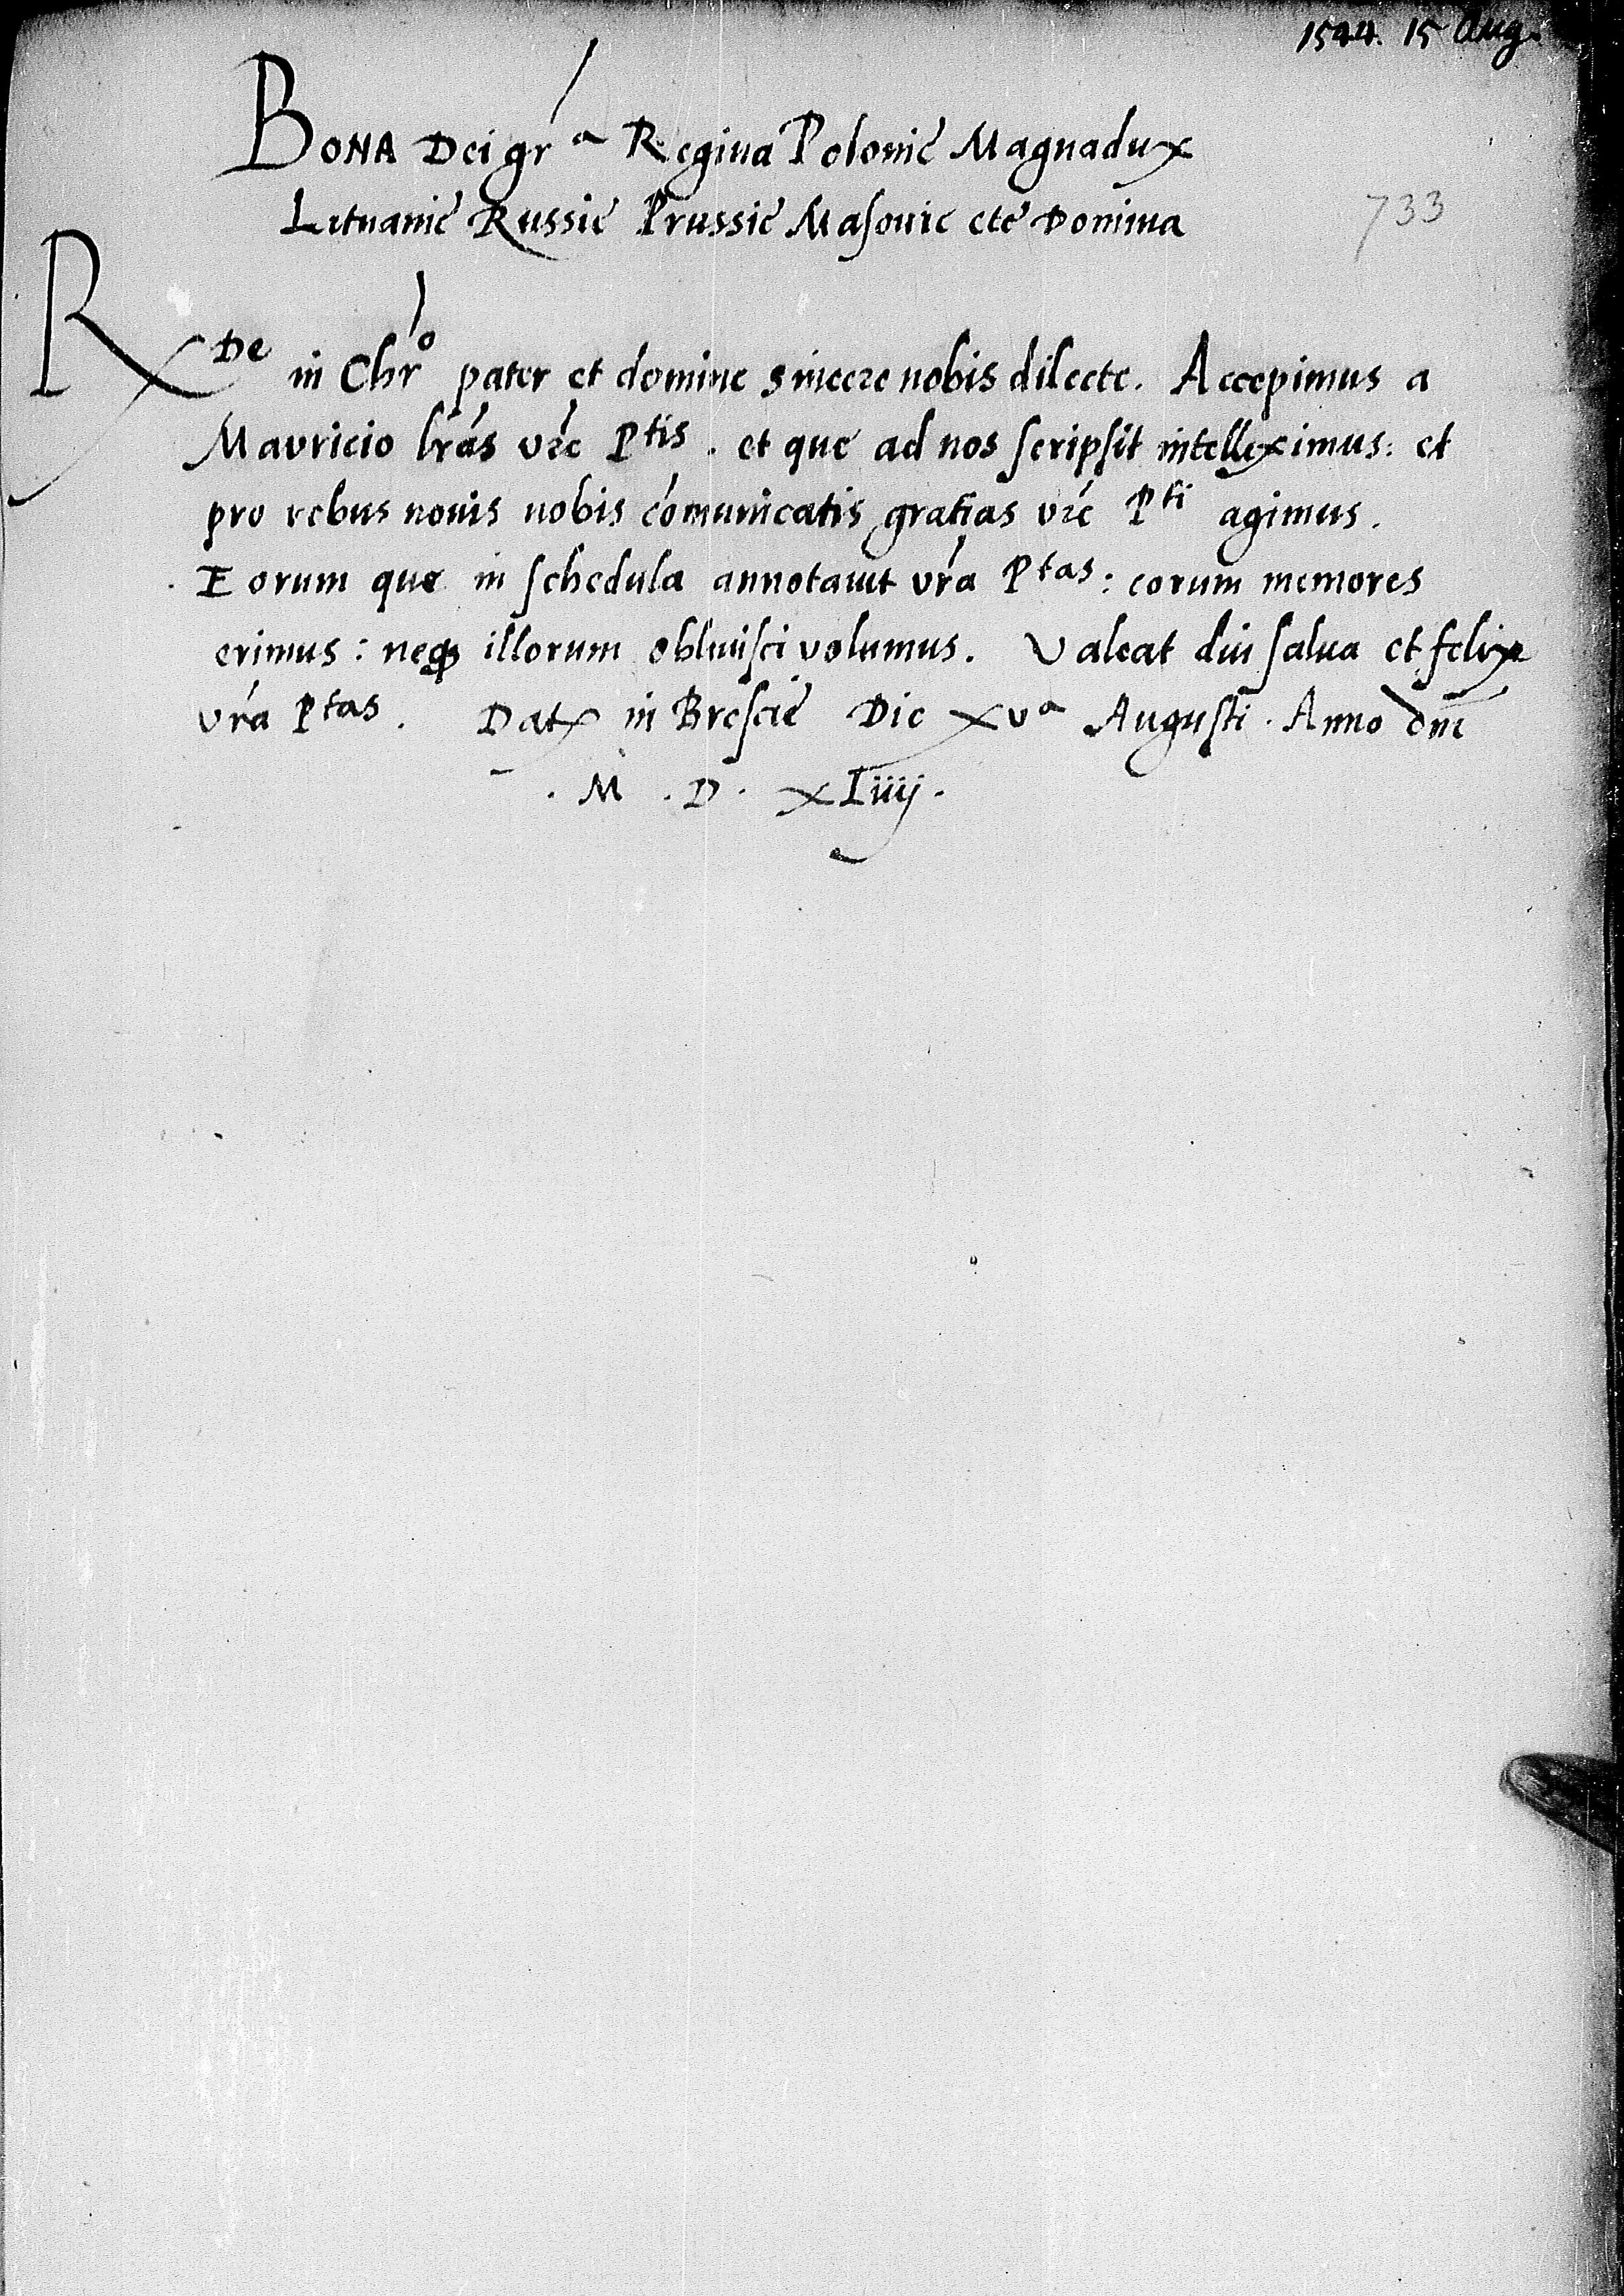 1544. 15 Aug.
BONA Dei gr̃a Regina Polonie Magnadux
Lituanie Russie Prussie Masouie etc Domina
733
RDe in Chrõ pater et domine sincere nobis dilecte. Accepimus a
Mauricio lrãs vrẽ Ptis. et que ad nos scripsit intelleximus: et
pro rebus nouis nobis cõmunicatis gratias vrẽ Pti agimus.
Eorum que in schedula annotauit vrã Ptas: eorum memores
erimus: neqꝫ illorum obliuisci volumus. Valeat diu salua et felix
vrã Ptas. Dat in Brescie Die xva Augusti. Anno dnĩ
.M.D.xliiij.